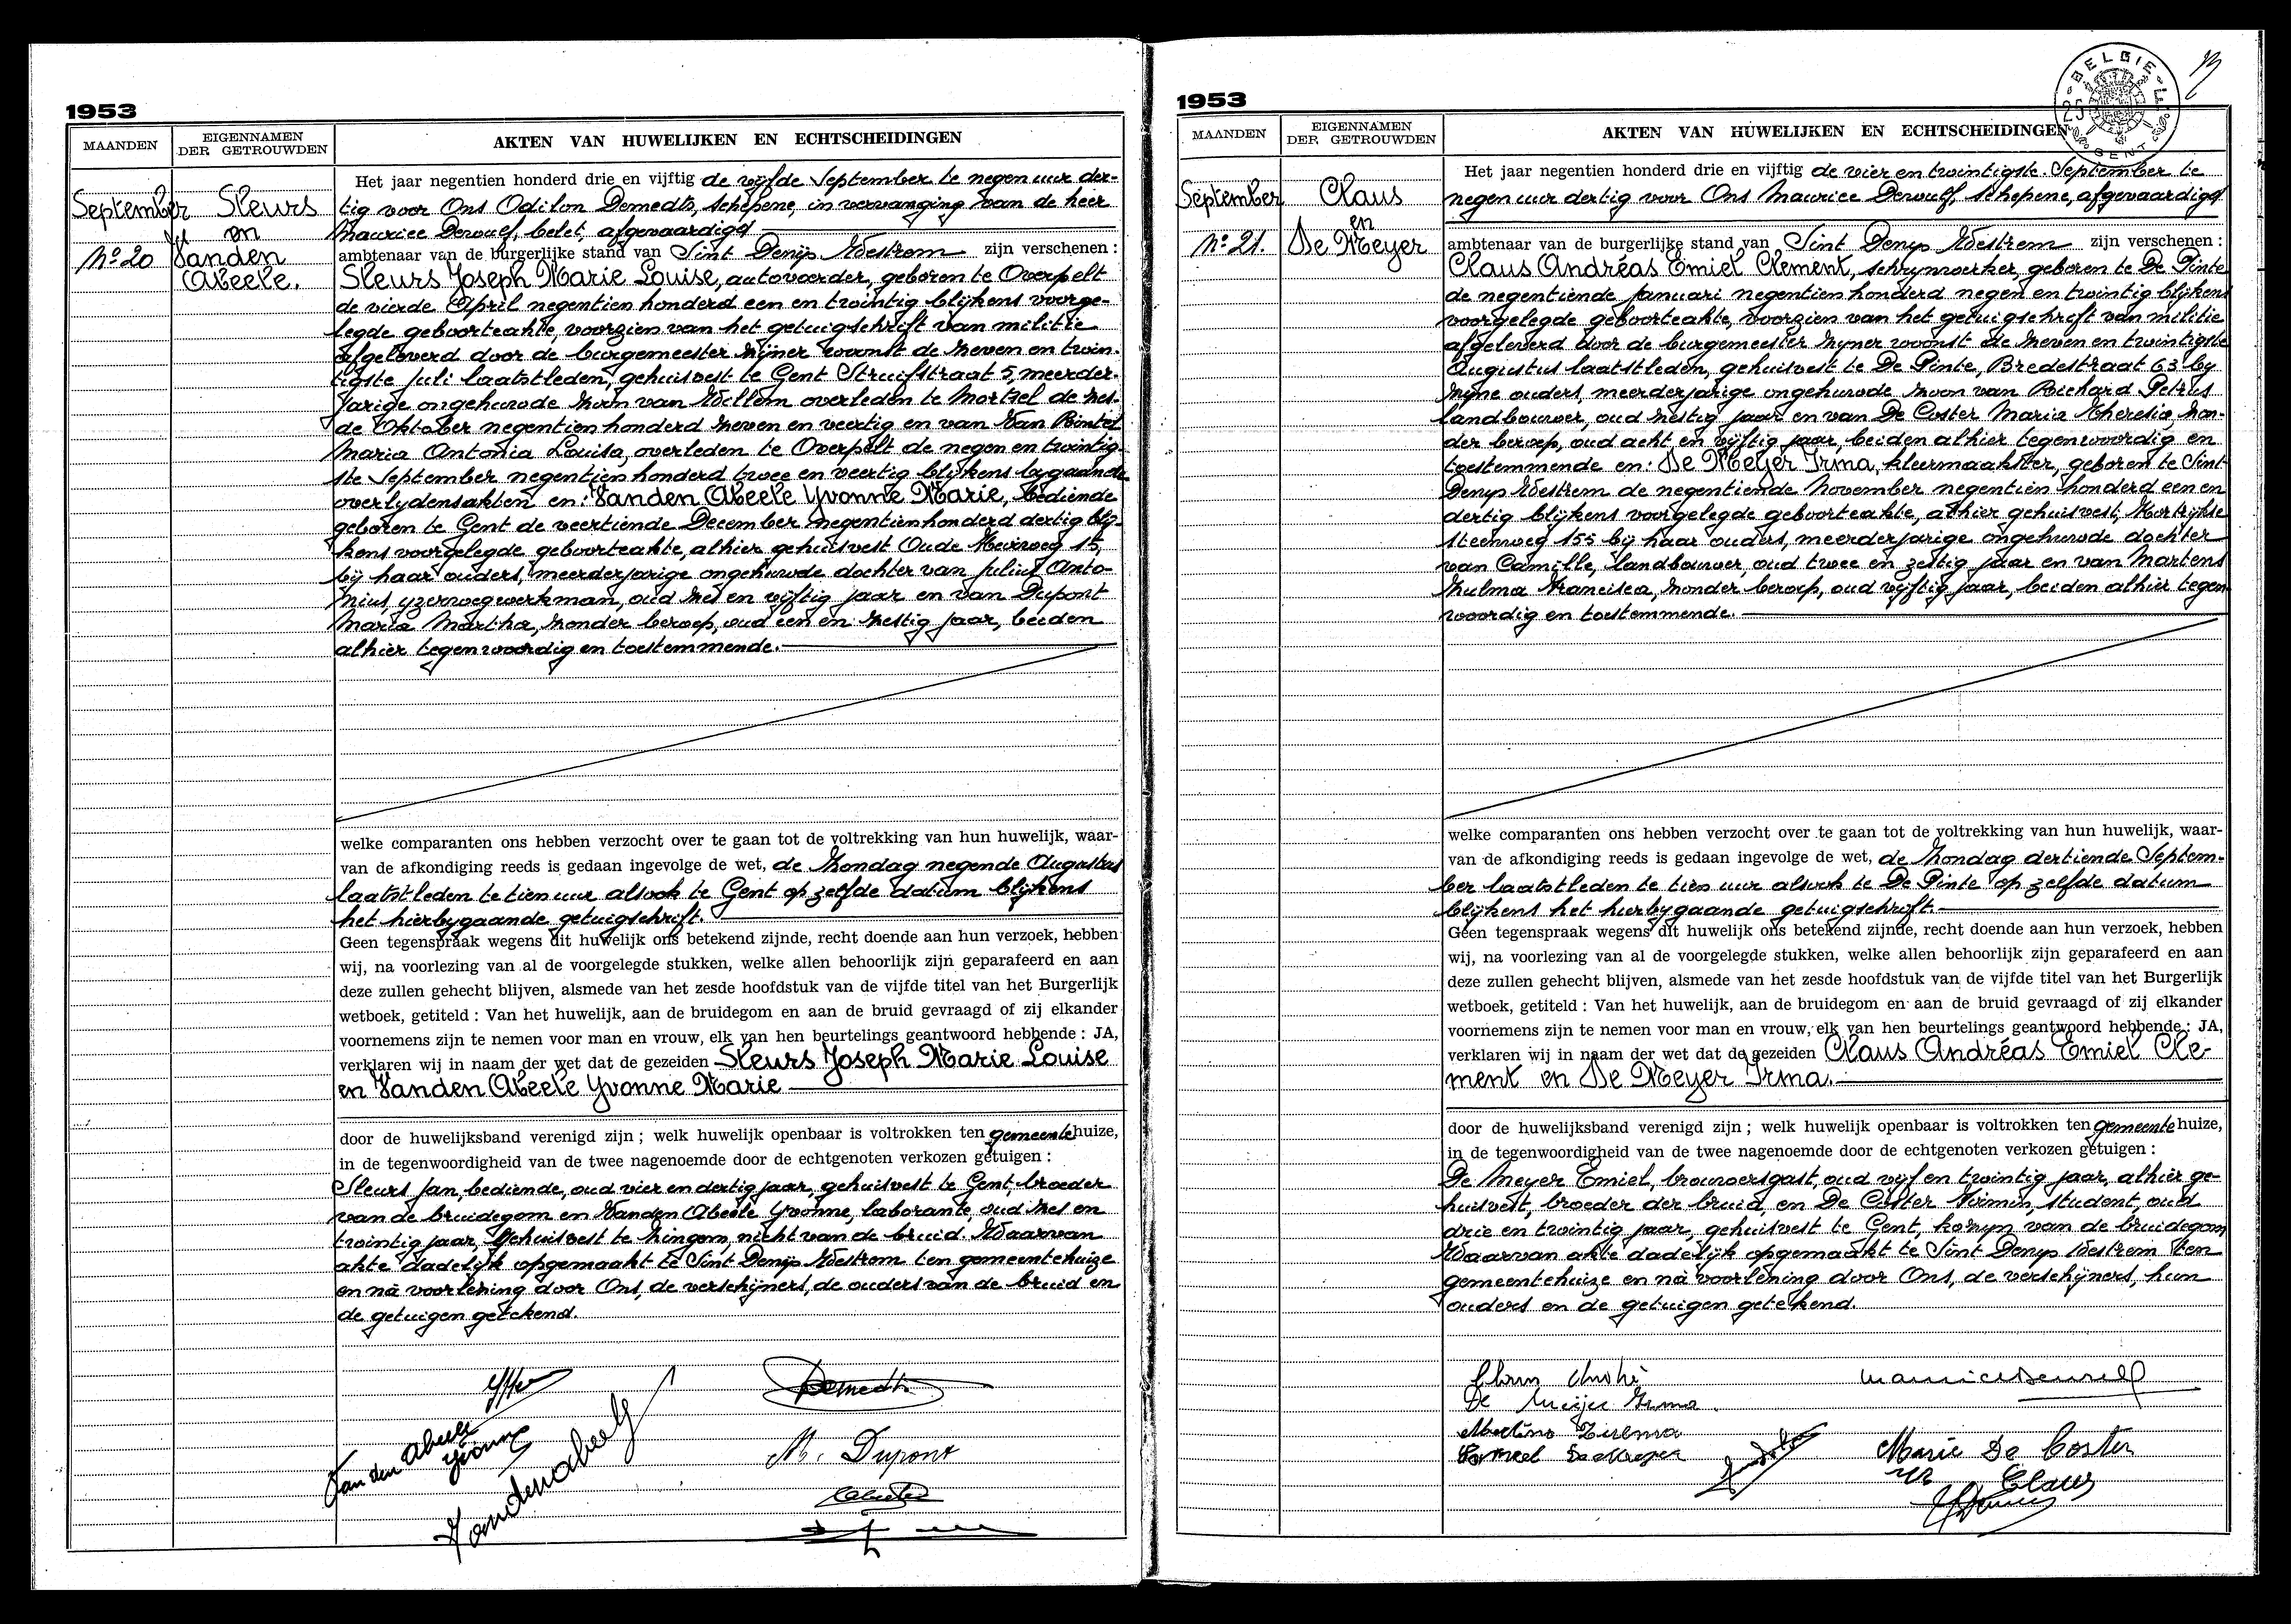 1953
MAANDEN
EIGENNAMEN
DER GETROUWDEN
AKTEN VAN HUWELIJKEN EN ECHTSCHEIDINGEN
September
Nº 20
Sleurs
en
Vanden
Abeele.
Het jaar negentien honderd drie en vijftig de vijfde September te negen uur der-
tig voor Ons Odilon Demedts, schepene, in vervanging van de heer
Maurice Dewulf, belet, afgevaardigd
ambtenaar van de burgerlijke stand van Sint Denijs Westrem zijn verschenen :
Sleurs Joseph Marie Louise, autovoerder, geboren te Overpelt
de vierde April negentien honderd een en twintig blijkens voorge-
legde geboorteakte, voorzien van het getuigschrift van militie
afgeleverd door de burgemeester zijner woonst de zeven en twin-
tigste juli laatstleden, gehuisvest te Gent Struifstraat 5, meerder-
jarige ongehuwde zoon van Willem overleden te Mortsel de zes-
de Oktober negentien honderd zeven en veertig en van Van Pointel
Maria Antonia Louisa, overleden te Overpelt de negen en twintig-
ste September negentien honderd twee en veertig blijkens bygaande
overlydensakten en: Vanden Abeele Yvonne Marie, bediende
geboren te Gent de veertiende December negentienhonderd dertig bly-
kens voorgelegde geboorteakte, alhier gehuisvest Oude Heirweg 15,
bij haar ouders, meerderjarige ongehuwde dochter van Julius Anto-
nius, yzerwegwerkman, oud zes en vijftig jaar en van Dupont
Maria Martha, zonder beroep, oud een en zestig jaar, beiden
alhier tegenwoordig en toestemmende.
welke comparanten ons hebben verzocht over te gaan tot de voltrekking van hun huwelijk, waar-
van de afkondiging reeds is gedaan ingevolge de wet, de Zondag negende Augustus
laatstleden te tien uur alsook te Gent op zelfde datum blijkens
het hierbygaande getuigschrift.
Geen tegenspraak wegens dit huwelijk ons betekend zijnde, recht doende aan hun verzoek, hebben
wij, na voorlezing van al de voorgelegde stukken, welke allen behoorlijk zijn geparafeerd en aan
deze zullen gehecht blijven, alsmede van het zesde hoofdstuk van de vijfde titel van het Burgerlijk
wetboek, getiteld : Van het huwelijk, aan de bruidegom en aan de bruid gevraagd of zij elkander
voornemens zijn te nemen voor man en vrouw, elk van hen beurtelings geantwoord hebbende : JA,
verklaren wij in naam der wet dat de gezeiden Sleurs Joseph Marie Louise
en Vanden Abeele Yvonne Marie
door de huwelijksband verenigd zijn ; welk huwelijk openbaar is voltrokken ten gemeentehuize,
in de tegenwoordigheid van de twee nagenoemde door de echtgenoten verkozen getuigen :
Sleurs Jan, bediende, oud vier en dertig jaar, gehuisvest te Gent, broeder
van de bruidegom en Vanden Abeele Yvonne, laborante oud zes en
twintig jaar, gehuisvest te Zingem, nicht van de bruid. Waarvan
akte dadelijk opgemaakt te Sint Denijs Westrem ten gemeentehuize
en nà voorlezing door Ons, de verschijners, de ouders van de bruid en
de getuigen getekend.
Demedts
Van den Abeele
Yvonne
Vandenabeele
M. Dupont
1953
BELGIE
GENT
MAANDEN
EIGENNAMEN
DER GETROUWDEN
AKTEN VAN HUWELIJKEN EN ECHTSCHEIDINGEN
September
Nº 21.
Claus
en
De Meyer
Het jaar negentien honderd drie en vijftig de vier en twintigste September te
negen uur dertig voor Ons Maurice Dewulf, schepene, afgevaardigd
ambtenaar van de burgerlijke stand van Sint Denys Westrem zijn verschenen :
Claus Andréas Emiel Clement, schrynwerker, geboren te De Pinte
de negentiende januari negentien honderd negen en twintig blijkens
voorgelegde geboorteakte, voorzien van het getuigschrift van militie
afgeleverd door de burgemeester zyner woonst de zeven en twintigste
Augustus laatstleden, gehuisvest te De Pinte, Bredestraat 63 by
zyne ouders, meerderjarige ongehuwde zoon van Richard Petrus
landbouwer, oud zestig jaar en van De Coster Maria Theresia, zon-
der beroep, oud acht en vijftig jaar, beiden alhier tegenwoordig en
toestemmende en: De Meyer Irma, kleermaakster, geboren te Sint
Denys Westrem de negentiende November negentien honderd een en
dertig blijkens voorgelegde geboorteakte, alhier gehuisvest, Kortrijkse
steenweg 155 bij haar ouders, meerderjarige ongehuwde dochter
van Camille, landbouwer, oud twee en zestig jaar en van Martens
Zulma Francisca, zonder beroep, oud vijftig jaar, beiden alhier tegen-
woordig en toestemmende.
welke comparanten ons hebben verzocht over te gaan tot de voltrekking van hun huwelijk, waar-
van de afkondiging reeds is gedaan ingevolge de wet, de Zondag dertiende Septem-
ber laatstleden te tien uur alsook te De Pinte op zelfde datum
blijkens het hierbygaande getuigschrift.
Geen tegenspraak wegens dit huwelijk ons betekend zijnde, recht doende aan hun verzoek, hebben
wij, na voorlezing van al de voorgelegde stukken, welke allen behoorlijk zijn geparafeerd en aan
deze zullen gehecht blijven, alsmede van het zesde hoofdstuk van de vijfde titel van het Burgerlijk
wetboek, getiteld : Van het huwelijk, aan de bruidegom en aan de bruid gevraagd of zij elkander
voornemens zijn te nemen voor man en vrouw, elk van hen beurtelings geantwoord hebbende : JA,
verklaren wij in naam der wet dat de gezeiden Claus Andréas Emiel Cle-
ment en De Meyer Irma.
door de huwelijksband verenigd zijn ; welk huwelijk openbaar is voltrokken ten gemeentehuize,
in de tegenwoordigheid van de twee nagenoemde door de echtgenoten verkozen getuigen :
De Meyer Emiel, brouwersgast, oud vijf en twintig jaar, alhier ge-
huisvest, broeder der bruid, en De Coster Firmin, student, oud
drie en twintig jaar, gehuisvest te Gent, kozyn van de bruidegom
Waarvan akte dadelijk opgemaakt te Sint Denys Westrem ten
gemeentehuize en nà voorlezing door Ons, de verschijners, hun
ouders en de getuigen getekend.
Claus André
Maurice Dewulf
De Meijer Irma.
Martens Zulma
Marie De Coster
Claus